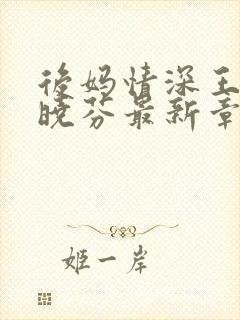 后妈情深王
晓芬最新章
姬一岸